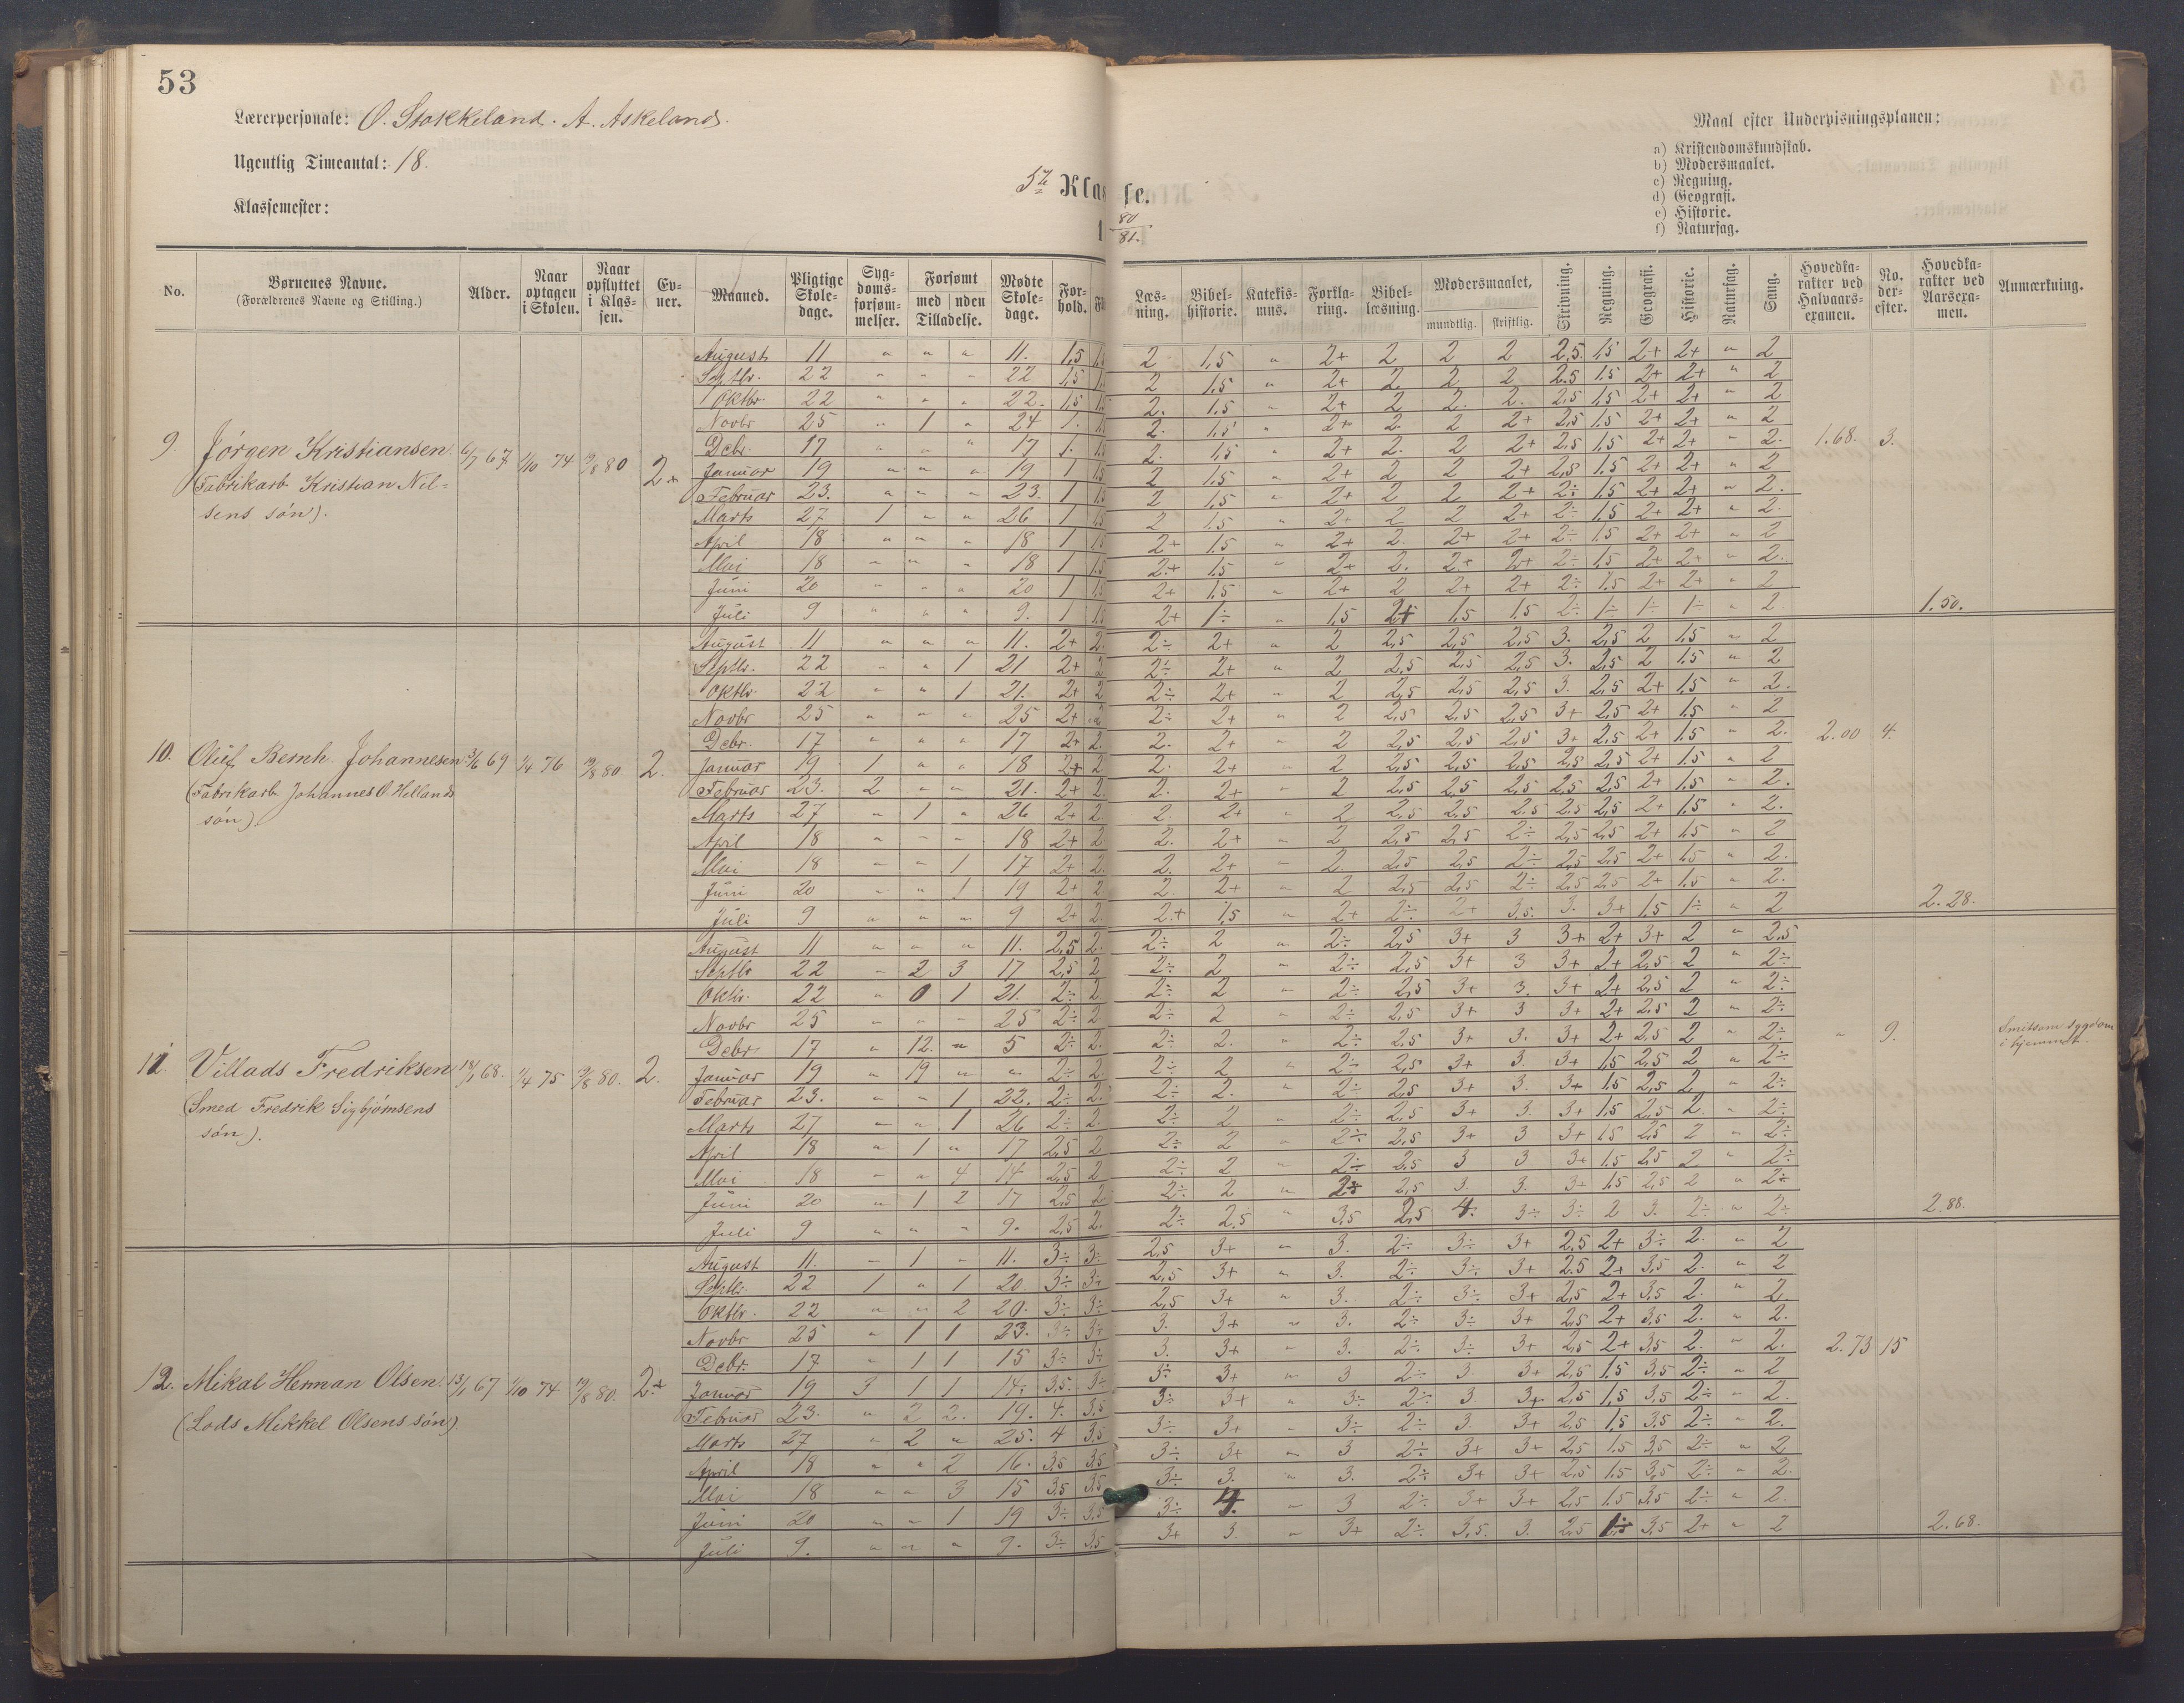 53
Lærerpersonale: O. Stokkeland. A. Askeland.
Ugentlig Timeantal: 18.
Klassemester:
5te Klasse.
1 80/81.
Maal efter Undervisningsplanen:
a) Kristendomskundskab.
b) Modersmaalet.
c) Regning.
d) Geografi.
e) Historie.
f) Naturfag.
No. Børnenes Navne. (Forældrenes Navne og Stilling.) Alder. Naar optagen i Skolen. Naar opflyttet i Klassen. Evner. Maaned. Pligtige Skoledage. Sygdomsforsømmelser. Forsømt med uden Tilladelse. Mødte Skoledage. Forhold. Læsning. Bibelhistorie. Katekismus. Forklaring. Bibellæsning. Modersmaalet, mundtlig. skriftlig. Skrivning. Regning. Geografi. Historie. Naturfag. Sang. Hovedkarakter ved Halvaarsexamen. No. derefter. Hovedkarakter ved Aarsexamen. Anmærkning.
August 11 " " " 11. 1,5 1,5 2 1,5 " 2+ 2 2 2 2,5 1,5 2+ 2+ " 2
Septbr. 22 " " " 22 1,5 1,5 2 1,5 " 2+ 2. 2 2 2.5 1.5 2+ 2+ " 2
Oktbr. 22 " " " 22. 1,5 1,5 2. 1.5 " 2+ 2 2. 2. 2,5 1,5 2+ 2+ " 2
Novbr 25 " 1 " 24 1. 1,5 2. 1,5 " 2+ 2 2 2+ 2,5 1.5 2+ 2+ " 2
Debr. 17 " " " 17 1. 1,5 2. 1,5 " 2+ 2. 2 2+ 2,5 1,5 2+ 2+ " 2.
9. Jørgen Kristiansen 6/7 67 1/10 74 19/8 80 2+ 1.68. 3.
(Fabrikarb. Kristian Nilsens søn).
Januar 19 " " " 19 1 1,5 2 1.5 " 2+ 2 2 2+ 2,5 1.5 2+ 2+ " 2
Februar 23. " " " 23. 1 1,5 2 1,5 " 2+ 2 2 2+ 2÷ 1,5 2+ 2+ " 2.
Marts 27 1 " " 26 1 1,5 2 1.5 " 2+ 2 2 2+ 2÷ 1,5 2+ 2+ " 2.
April 18 " " " 18 1 1,5 2+ 1.5 " 2+ 2. 2+ 2+ 2÷ 1,5 2+ 2+ " 2
Mai 18 " " " 18 1 1.5 2+ 1.5 " 2+ 2. 2+ 2+ 2÷ 1,5 2+ 2+ " 2.
Juni 20 " " " 20 1 1,5 2+ 1.5 " 2+ 2 2+ 2+ 2÷ 1.5 2+ 2+ " 2
Juli 9 " " " 9. 1 1.5 2+ 1÷ " 1,5 2+ 1,5 1,5 2÷ 1÷ 1÷ 1÷ " 2. 1.50.
August 11 " " " 11. 2+ 2. 2÷ 2+ " 2 2,5 2,5 2,5 3. 2,5 2 1.5 " 2
Septbr. 22 " " 1 21 2+ 2 2÷ 2+ " 2 2,5 2,5 2,5 3. 2,5 2 1.5 " 2
Oktbr. 22 " " 1 21. 2+ 2 2÷ 2+ " 2 2,5 2,5 2,5 3. 2,5 2+ 1.5 " 2.
Novbr 25 " " " 25 2+ 2 2÷ 2+ " 2 2,5 2,5 2,5 3+ 2,5 2+ 1,5 " 2
Debr. 17 " " " 17 2+ 2. 2. 2+ " 2 2,5 2,5 2,5 3+ 2,5 2+ 1.5 " 2.
10. Oluf Bernh. Johannesen 3/6 69 1/4 76 19/8 80 2. 2.00 4.
(Fabrikarb. Johannes O. Hellands søn).
Januar 19 1 " " 18 2+ 2 2. 2+ " 2 2,5 2,5 2,5 2,5 2,5 2+ 1.5 " 2
Februar 23. 2 " " 21. 2+ 2. 2. 2+ " 2 2,5 2,5 2,5 2,5 2,5 2+ 1.5 " 2.
Marts 27 " 1 " 26 2+ 2. 2. 2+ " 2 2,5 2,5 2.5 2.5 2,5 2+ 1.5 " 2.
April 18 " " " 18 2+ 2 2. 2+ " 2 2,5 2,5 2÷ 2,5 2,5 2+ 1.5 " 2
Mai 18 " " 1 17 2+ 2. 2. 2+ " 2. 2,5 2,5 2÷ 2,5 2,5 2+ 1,5 " 2.
Juni 20 " " 1 19 2+ 2. 2. 2+ " 2 2,5 2,5 2÷ 2,5 2,5 2+ 1.5 " 2.
Juli 9 " " " 9 2+ 2. 2.+ 1,5 " 2+ 2÷ 2+ 3,5. 3. 3+ 1,5 1÷ " 2 2.28.
August 11 " " " 11. 2,5 2. 2÷ 2 " 2÷ 2,5 3+ 3 3+ 2+ 3+ 2 " 2,5
Septbr 22 " 2 3 17 2,5 2 2÷ 2 " 2÷ 2,5 3+ 3 3+ 2+ 2,5 2 " 2÷
Oktbr. 22 " 0 1 21. 2÷ 2. 2÷ 2 " 2÷ 2,5 3+ 3. 3+ 2+ 2,5 2 " 2÷
Novbr 25 " " " 25 2÷ 2 2÷ 2 " 2÷ 2,5 3+ 3 3+ 2+ 2,5 2 " 2÷
Debr. 17 " 12. " 5 2÷ 2. 2÷ 2. " 2÷ 2,5 3+ 3. 3+ 2+ 2,5 2 " 2÷
11. Villads Fredriksen 18/1 68. 1/4 75 19/8 80. 2. " 9. Smitsom sygdom i hjemmet.
(Smed Fredrik Sigbjørnsens søn).
Januar 19 " 19 " " 2÷ 2. 2÷ 2 " 2÷ 2,5 3+ 3. 3+ 1,5 2,5 2 " 2÷
Februar 23. " " 1 22. 2÷ 2. 2÷ 2. " 2÷ 2,5 3+ 3. 3+ 1.5 2,5 2 " 2÷
Marts 27 " " 1 26 2÷ 2. 2÷ 2 " 2÷ 2,5 3+ 3. 3+ 1,5 2,5 2. " 2÷
April 18 " 1 " 17 2,5 2 2÷ 2 " 2÷ 2,5 3+ 3 3+ 1.5 2,5 2 " 2÷
Mai 18 " " 4 14 2,5 2 2÷ 2 " 2÷ 2,5 3 3 3+ 1.5 2,5 2 " 2÷
Juni 20 " 1 2 17 2,5 2 2÷ 2 " 2÷ 2,5 3. 3. 3+ 1.5 2,5 2 " 2÷
Juli 9 " " " 9. 2,5 2. 2÷ 2.5 " 3,5 2,5 4. 3÷ 3÷ 2 3. 2÷ " 2÷ 2.88.
August 11. " 1 " 11. 3÷ 3÷ 2,5 3+ " 3. 2÷ 3÷ 3+ 2,5 2+ 3÷ 2. " 2
Septbr. 22 1 " 1 20. 3÷ 3÷ 2,5 3+ " 3. 2÷ 3÷ 3+ 2.5 2+ 3,5 2. " 2
Oktbr. 22 " " 2 20. 3÷ 3÷ 2,5 3+ " 3. 2÷ 3÷ 3+ 2,5 2+ 3,5 2. " 2.
Novbr 25 " 1 1 23. 3÷ 3÷ 3. 3+ " 3. 2÷ 3÷ 3+ 2,5 2+ 3,5 2. " 2.
Debr. 17 " 1 1 15 3÷ 3÷ 3. 3+ " 3. 2÷ 3÷ 3+ 2,5 2+ 3,5 2. " 2.
12. Mikal Herman Olsen. 13/1 67 1/10 74 19/8 80. 2+ 2.73 15
(Lods Mikkel Olsens søn).
Januar 19 3 1 1 14. 3,5. 3÷ 3÷ 3+ " 3 2÷ 3. 3+ 2,5 1.5 3,5 2÷ " 2
Februar 23. " 2 2. 19. 4. 3,5 3÷ 3+ " 3÷ 2÷ 3. 3+ 2,5 1,5 3,5 2÷ " 2.
Marts 27 " 2 " 25. 4 3,5 3÷ 3+ " 3÷ 2÷ 3. 3+ 2,5 1,5 3,5 2÷ " 2.
April 18 " " 2 16. 3,5 3,5 3÷ 3+ " 3 2÷ 3+ 3+ 2,5 1.5 3,5 2÷ " 2
Mai 18 " " 3 15 3,5 3,5 3÷ 3. " 3. 2÷ 3+ 3+ 2,5 1.5 3,5 2÷ " 2.
Juni 20 " " 1 19 3÷ 3,5 3÷ 4. " 3 2÷ 3+ 3+ 2,5 1.5 3,5 2÷ " 2.
Juli 9. " " " 9. 3÷ 3,5 3+ 3. " 3+ 2÷ 3,5. 3. 2,5 1,5 3,5 2+ " 2 2.68.